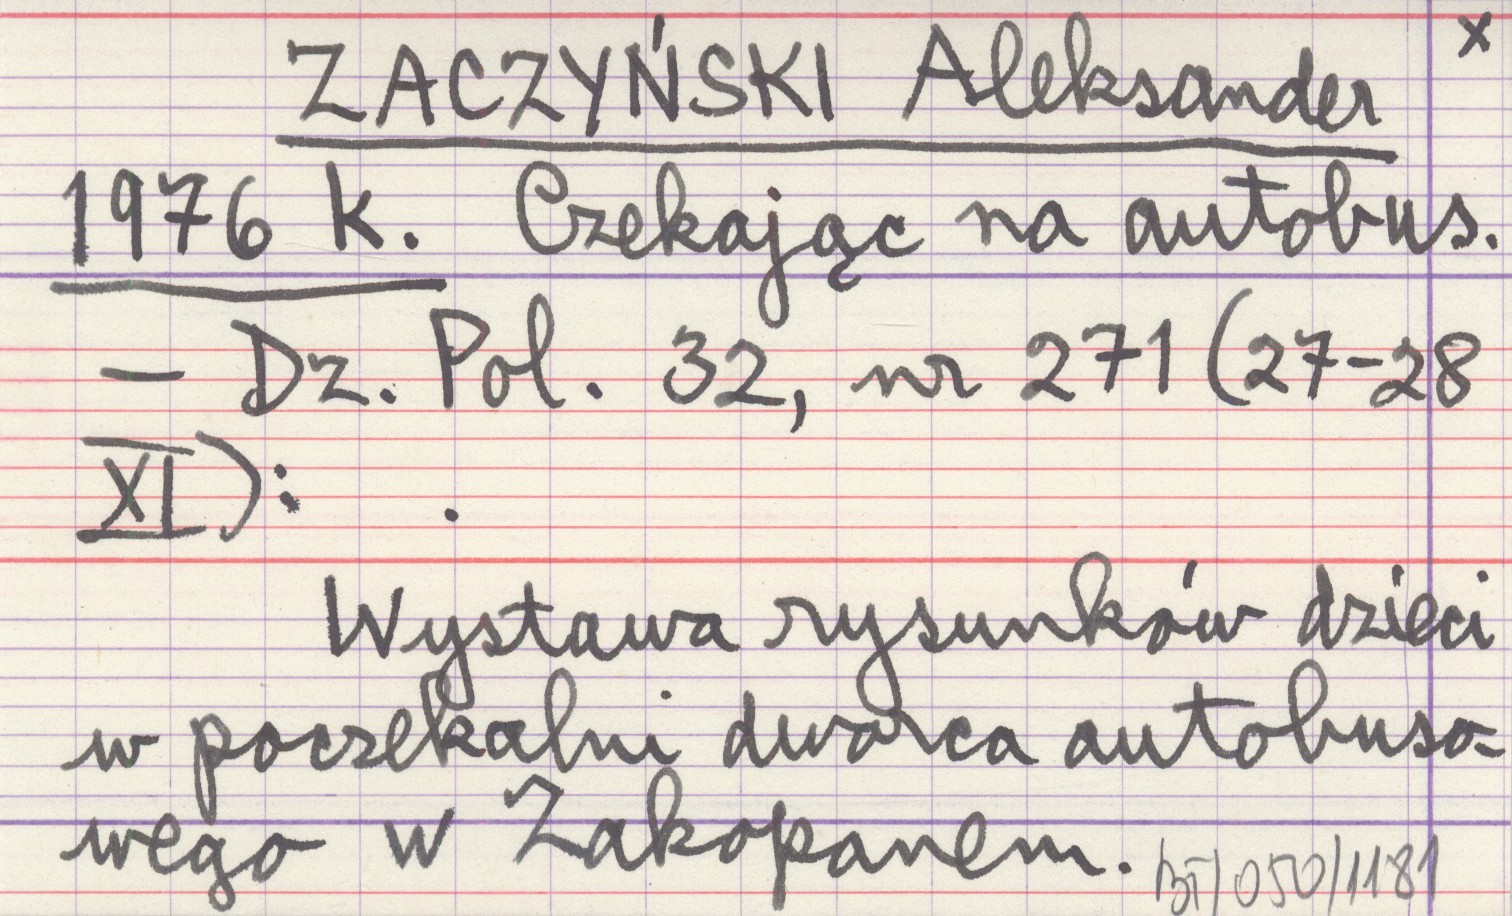 x
ZACZYŃSKI Aleksander
1976 k. Czekając na autobus.
— Dz. Pol. 32, nr 271 (27-28
XI): .
Wystawa rysunków dzieci
w poczekalni dworca autobuso-
wego w Zakopanem.
/050/1181